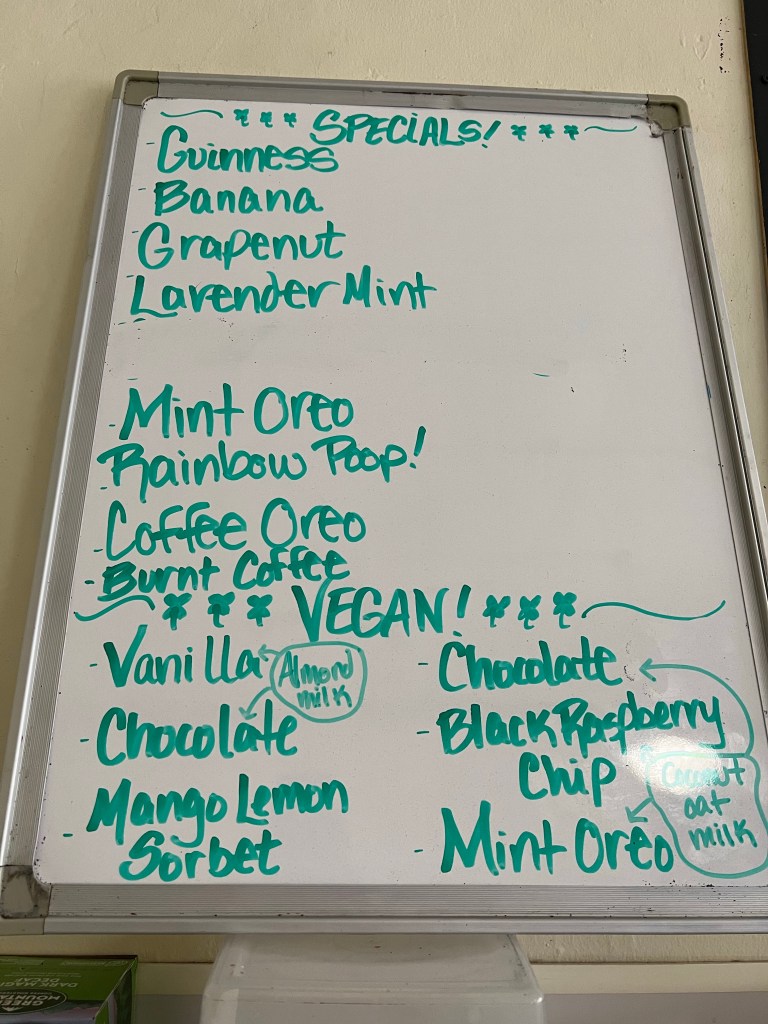 SPECIALS!
- Guinness
- Banana
- Grapenut
- Lavender Mint
- Mint Oreo
- Rainbow Poop!
- Coffee Oreo
- Burnt Coffee
VEGAN!
- Vanilla
Almond
milk
- Chocolate
- Mango Lemon
Sorbet
- Chocolate
- Black Raspberry
Chip
Coconut
oat
milk
- Mint Oreo
DARK MAGIC
DECAF
GREEN
MOUNTAIN